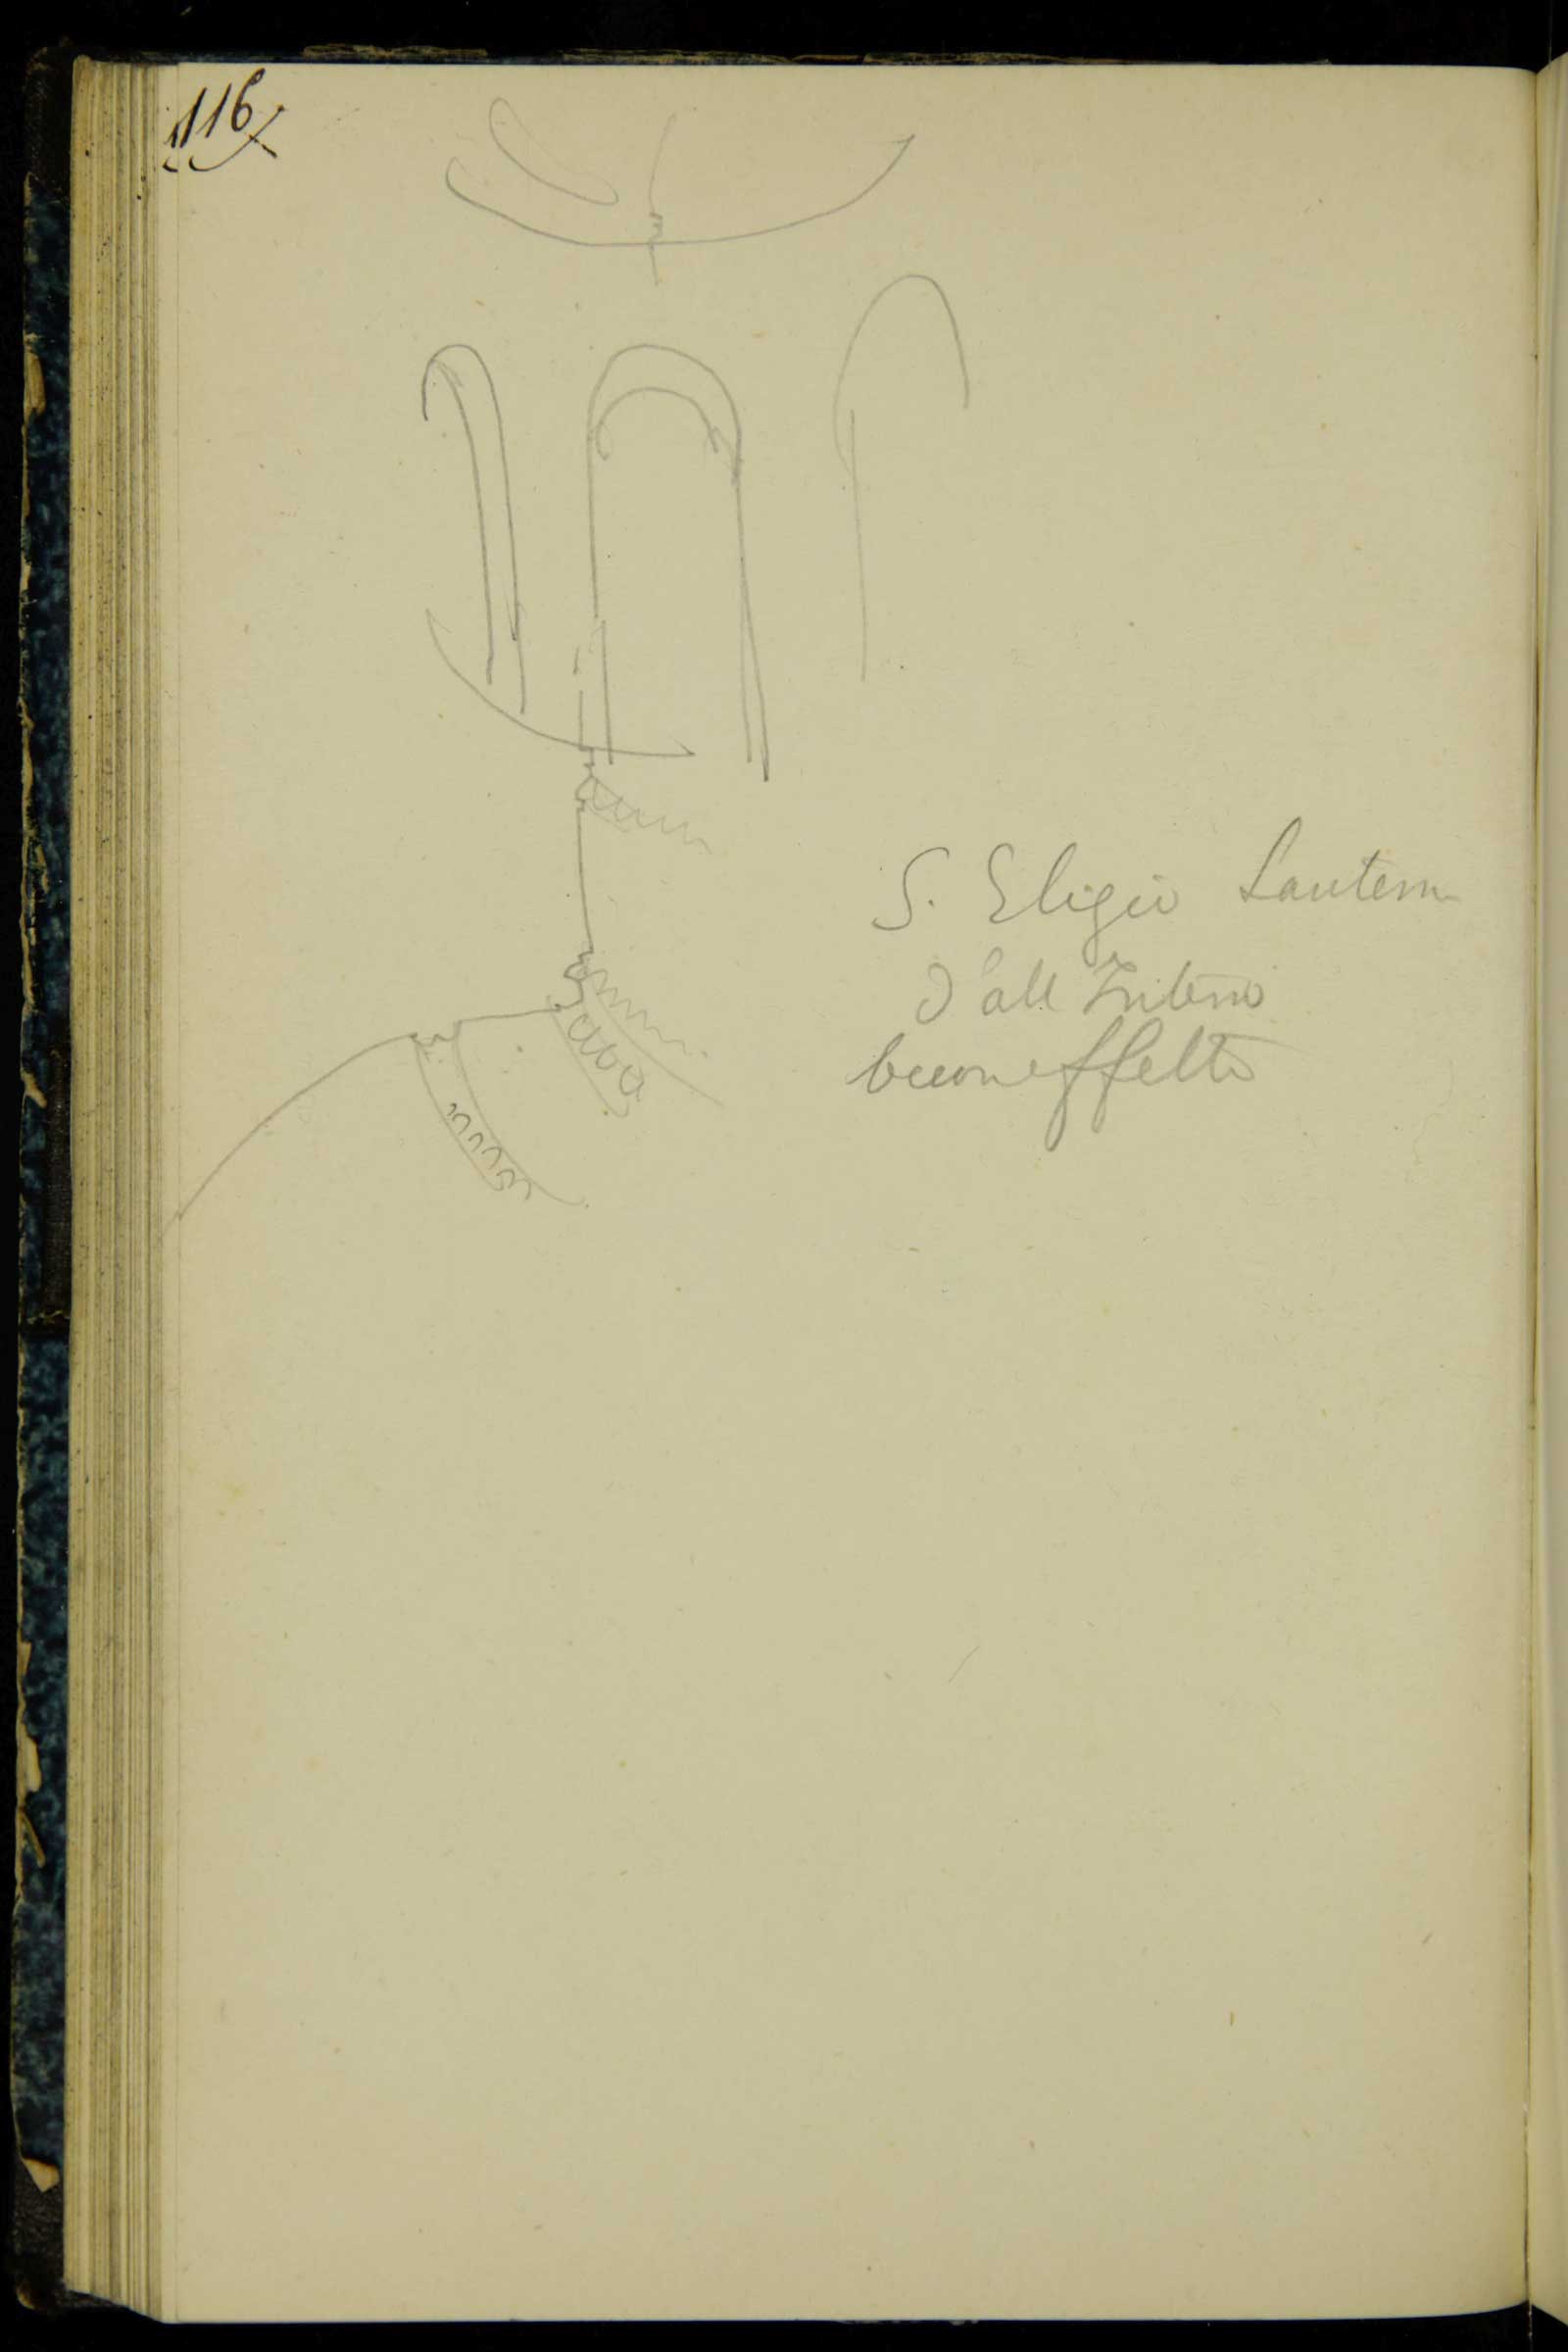 116
S. Eligio Lantern
d'all Interno
buon effetto